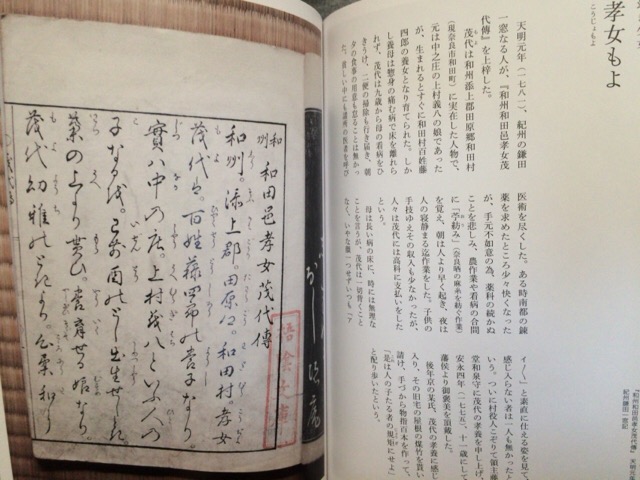 孝女もよ
こうじょもよ
天明元年（一七八一）、紀州の鎌田
一窓なる人が、『和州和田邑孝女茂
代傳』を上梓した。
茂代は和州添上郡田原郷和田村
（現奈良市和田町）に実在した人物で、
元は中之庄の上村義八の娘であった
が、生まれるとすぐに和田村百姓藤
四郎の養女となり育てられた。しか
し養母は惣身の痛む病で床を離れら
れず、茂代は九歳から母の看病をひ
きうけ、二便の掃除も行き届き、朝
夕の食事の用意も怠ることは無かっ
た。貧しい中にも諸所の医者を呼び
医術を尽くした。ある時南都の錬
薬を求めたところ少々快くなった
が、手元不如意の為、薬料の続かぬ
ことを悲しみ、農作業や看病の合間
に「苧紡み」（奈良晒の麻糸を紡ぐ作業）
を覚え、朝は人より早く起き、夜は
人の寝静まる迄作業をした。子供の
手技ゆえその収入も少なかったが、
人々は茂代には高料に支払いをした
母は長い病の床に、時には無理な
ことを言うが、茂代は一切背くこと
なく、いやな顔一つせずいつも「ア
イ〳〵」と素直に仕える姿を見て、
感じ入らない者は一人も無かったと
いう。ついに村役人こぞりて領主藤
堂和泉守に茂代の孝養を申し上げ、
安永四年（一七七五）、十一歳にして
藩侯より御褒美を頂戴した。
後年京の某氏、茂代の孝養に感じ
入り、その旧宅の屋根の煤竹を貰い
請け、手づから物指百本を作って、
『是は人の子たる者の規矩にせよ』
と配り歩いたという。
『和州和田邑孝女茂代傳』
紀州鎌田一窓記
和州
和田邑孝女茂代傳
和州添上郡。田原郷。和田村。孝女
茂代ハ。百姓藤四郎の養子なり。
實ハ中の庄。上村義八といふ人の
子なる
茂代幼稚のときより。